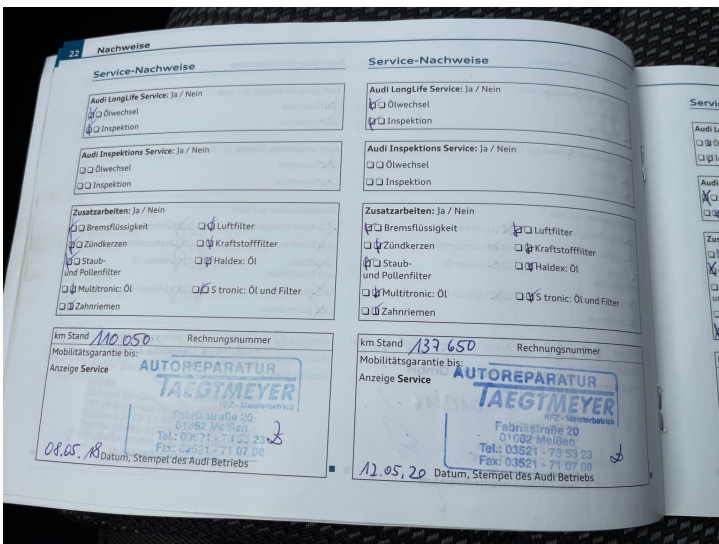 22 Nachweise
Service-Nachweise
Audi LongLife Service: Ja / Nein
Ölwechsel
Inspektion
Audi Inspektions Service: Ja / Nein
Ölwechsel
Inspektion
Zusatzarbeiten: Ja / Nein
Bremsflüssigkeit Luftfilter
Zündkerzen Kraftstofffilter
Staub- Haldex: Öl
und Pollenfilter
Multitronic: Öl S tronic: Öl und Filter
Zahnriemen
km Stand 110 050 Rechnungsnummer
Mobilitätsgarantie bis:
Anzeige Service
AUTOREPARATUR
TAEGTMEYER
KFZ - Meisterbetrieb
Fabrikstraße 20
01662 Meißen
Tel.: 03521 - 73 53 23
Fax: 03521 - 71 07 08
08.05.18 Datum, Stempel des Audi Betriebs
Service-Nachweise
Audi LongLife Service: Ja / Nein
Ölwechsel
Inspektion
Audi Inspektions Service: Ja / Nein
Ölwechsel
Inspektion
Zusatzarbeiten: Ja / Nein
Bremsflüssigkeit Luftfilter
Zündkerzen Kraftstofffilter
Staub- Haldex: Öl
und Pollenfilter
Multitronic: Öl S tronic: Öl und Filter
Zahnriemen
km Stand 137.650 Rechnungsnummer
Mobilitätsgarantie bis:
Anzeige Service
AUTOREPARATUR
TAEGTMEYER
KFZ - Meisterbetrieb
Fabrikstraße 20
01662 Meißen
Tel.: 03521 - 73 53 23
Fax: 03521 - 71 07 08
12.05.20 Datum, Stempel des Audi Betriebs